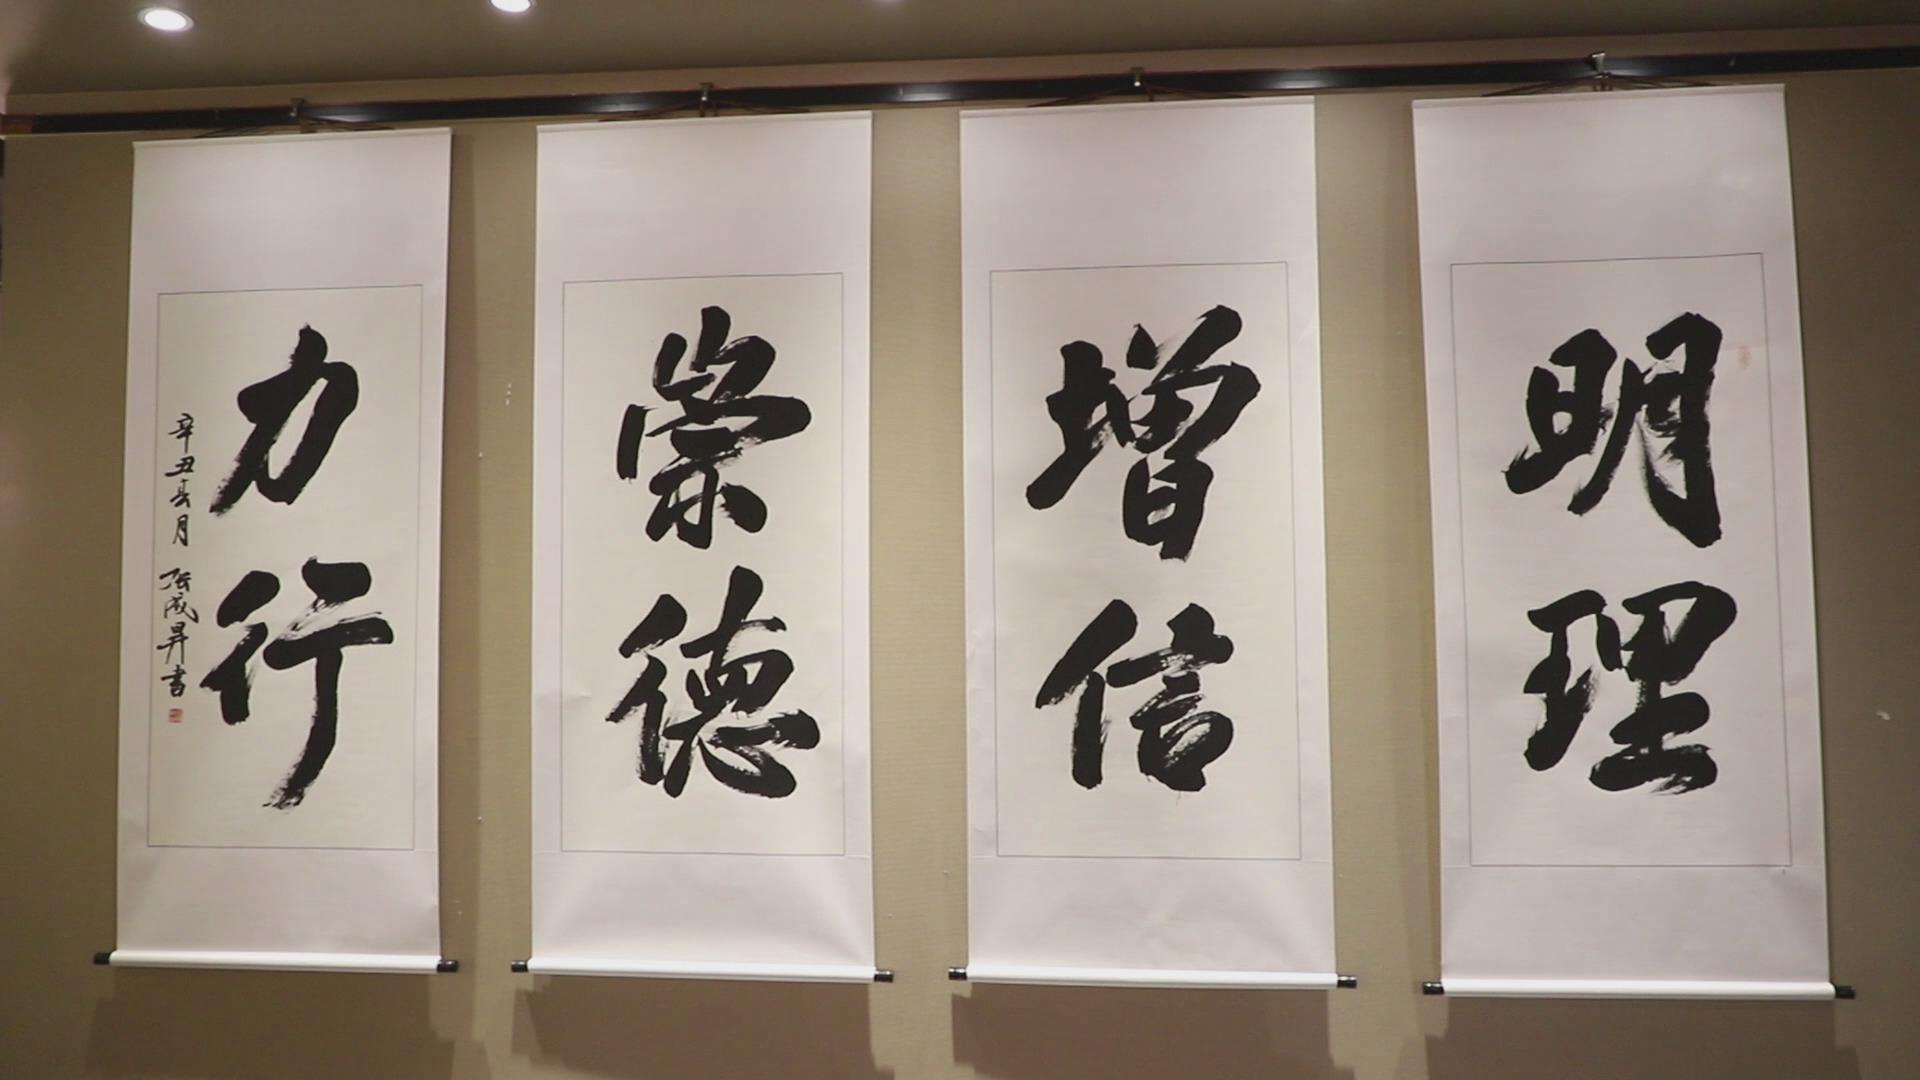 明理
增信
崇德
力行
辛丑夏月 張成昇書